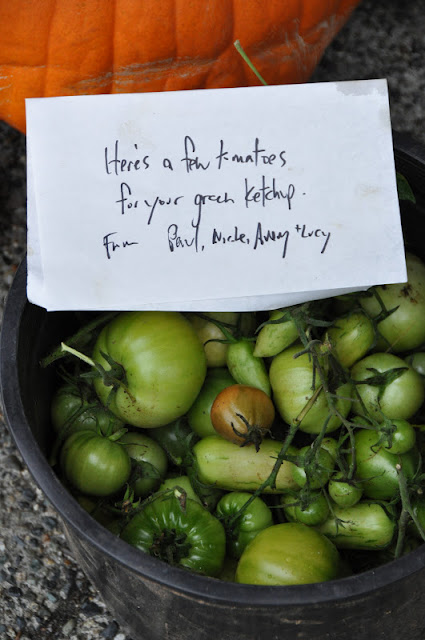 Here's a few tomatoes
for your green ketchup.
From Paul, Nicole, Avery + Lucy